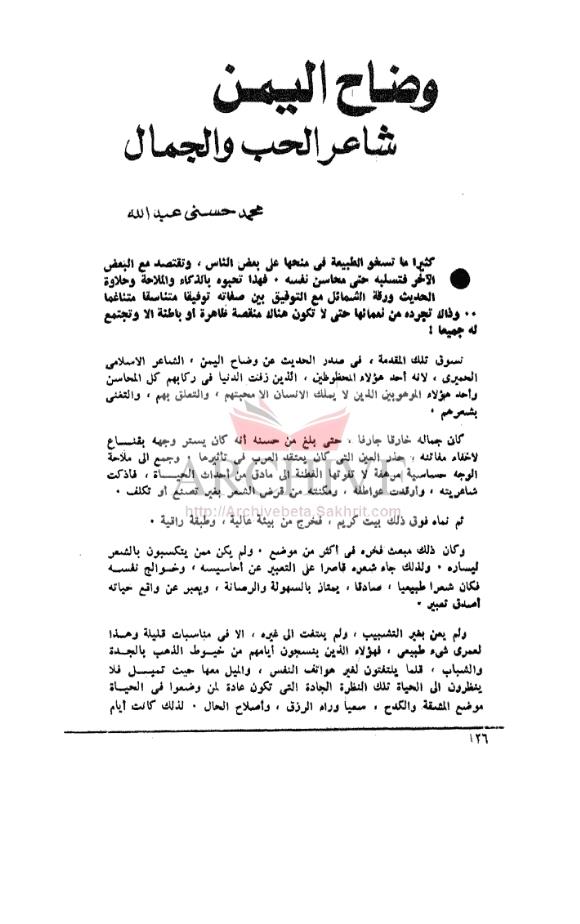 وضاح اليمن
شاعر الحب والجمال
محمد حسنى عبد الله
كثيرا ما تسخو الطبيعة فى منحها على بعض الناس ، وتقتصد مع البعض
الآخر فتسلبه حتى محاسن نفسه ٠ فهذا تحبوه بالذكاء والملاحة وحلاوة
الحديث ورقة الشمائل مع التوفيق بين صفاته توفيقا متناسقا متناغما
٠٠ وذاك تجرده من نعمائها حتى لا تكون هناك منقصة ظاهرة أو باطنة الا وتجتمع
له جميعا !
نسوق تلك المقدمة ، فى صدر الحديث عن وضاح اليمن ، الشاعر الاسلامى
الحميرى ، لانه أحد هؤلاء المحظوظين ، الذين زفت الدنيا فى ركابهم كل المحاسن
وأحد هؤلاء الموهوبين الذين لا يملك الانسان الا محبتهم ، والتعلق بهم ، والتغنى
بشعرهم ٠
كان جماله خارقا جارفا ، حتى بلغ من حسنه أنه كان يستر وجهه بقنـــاع
لاخفاء مفاتنه ، حذر العين التى كان يعتقد العرب فى تأثيرها ، وجمع الى ملاحة
الوجه حساسية مرهفة لا تفوتها الفطنة الى مادق من أحداث الحيـــاة ، فاذكت
شاعريته ، وأوقدت عواطفه ، ومكنته من قرض الشعر بغير تصنع أو تكلف ٠
ARCHIVE
http://Archivebeta.Sakhrit.com
ثم نماه فوق ذلك بيت كريم ، فخرج من بيئة عالية ، وطبقة راقية ٠
وكان ذلك مبعث فخره فى أكثر من موضع ٠ ولم يكن ممن يتكسبون بالشعر
ليساره ٠ ولذلك جاء شعره قاصرا على التعبير عن أحاسيسه ، وخوالج نفســه
فكان شعرا طبيعيا ، صادقا ، يمتاز بالسهولة والرصانة ، ويعبر عن واقع حياته
أصدق تعبير ٠
ولم يعن بغير التشبيب ، ولم يلتفت الى غيره ، الا فى مناسبات قليلة وهــذا
لعمرى شىء طبيعى ، فهؤلاء الذين ينسجون أيامهم من خيــوط الذهب بالجـدة
والشباب ، قلما يلتفتون لغير هواتف النفس ، والميل معها حيث تميــل فلا
ينظرون الى الحياة تلك النظرة الجادة التى تكون عادة لمن وضعوا فى الحيــاة
موضع المشقة والكدح ، سعيا وراء الرزق ، وأصلاح الحال ٠ لذلك كانت أيام
١٢٦